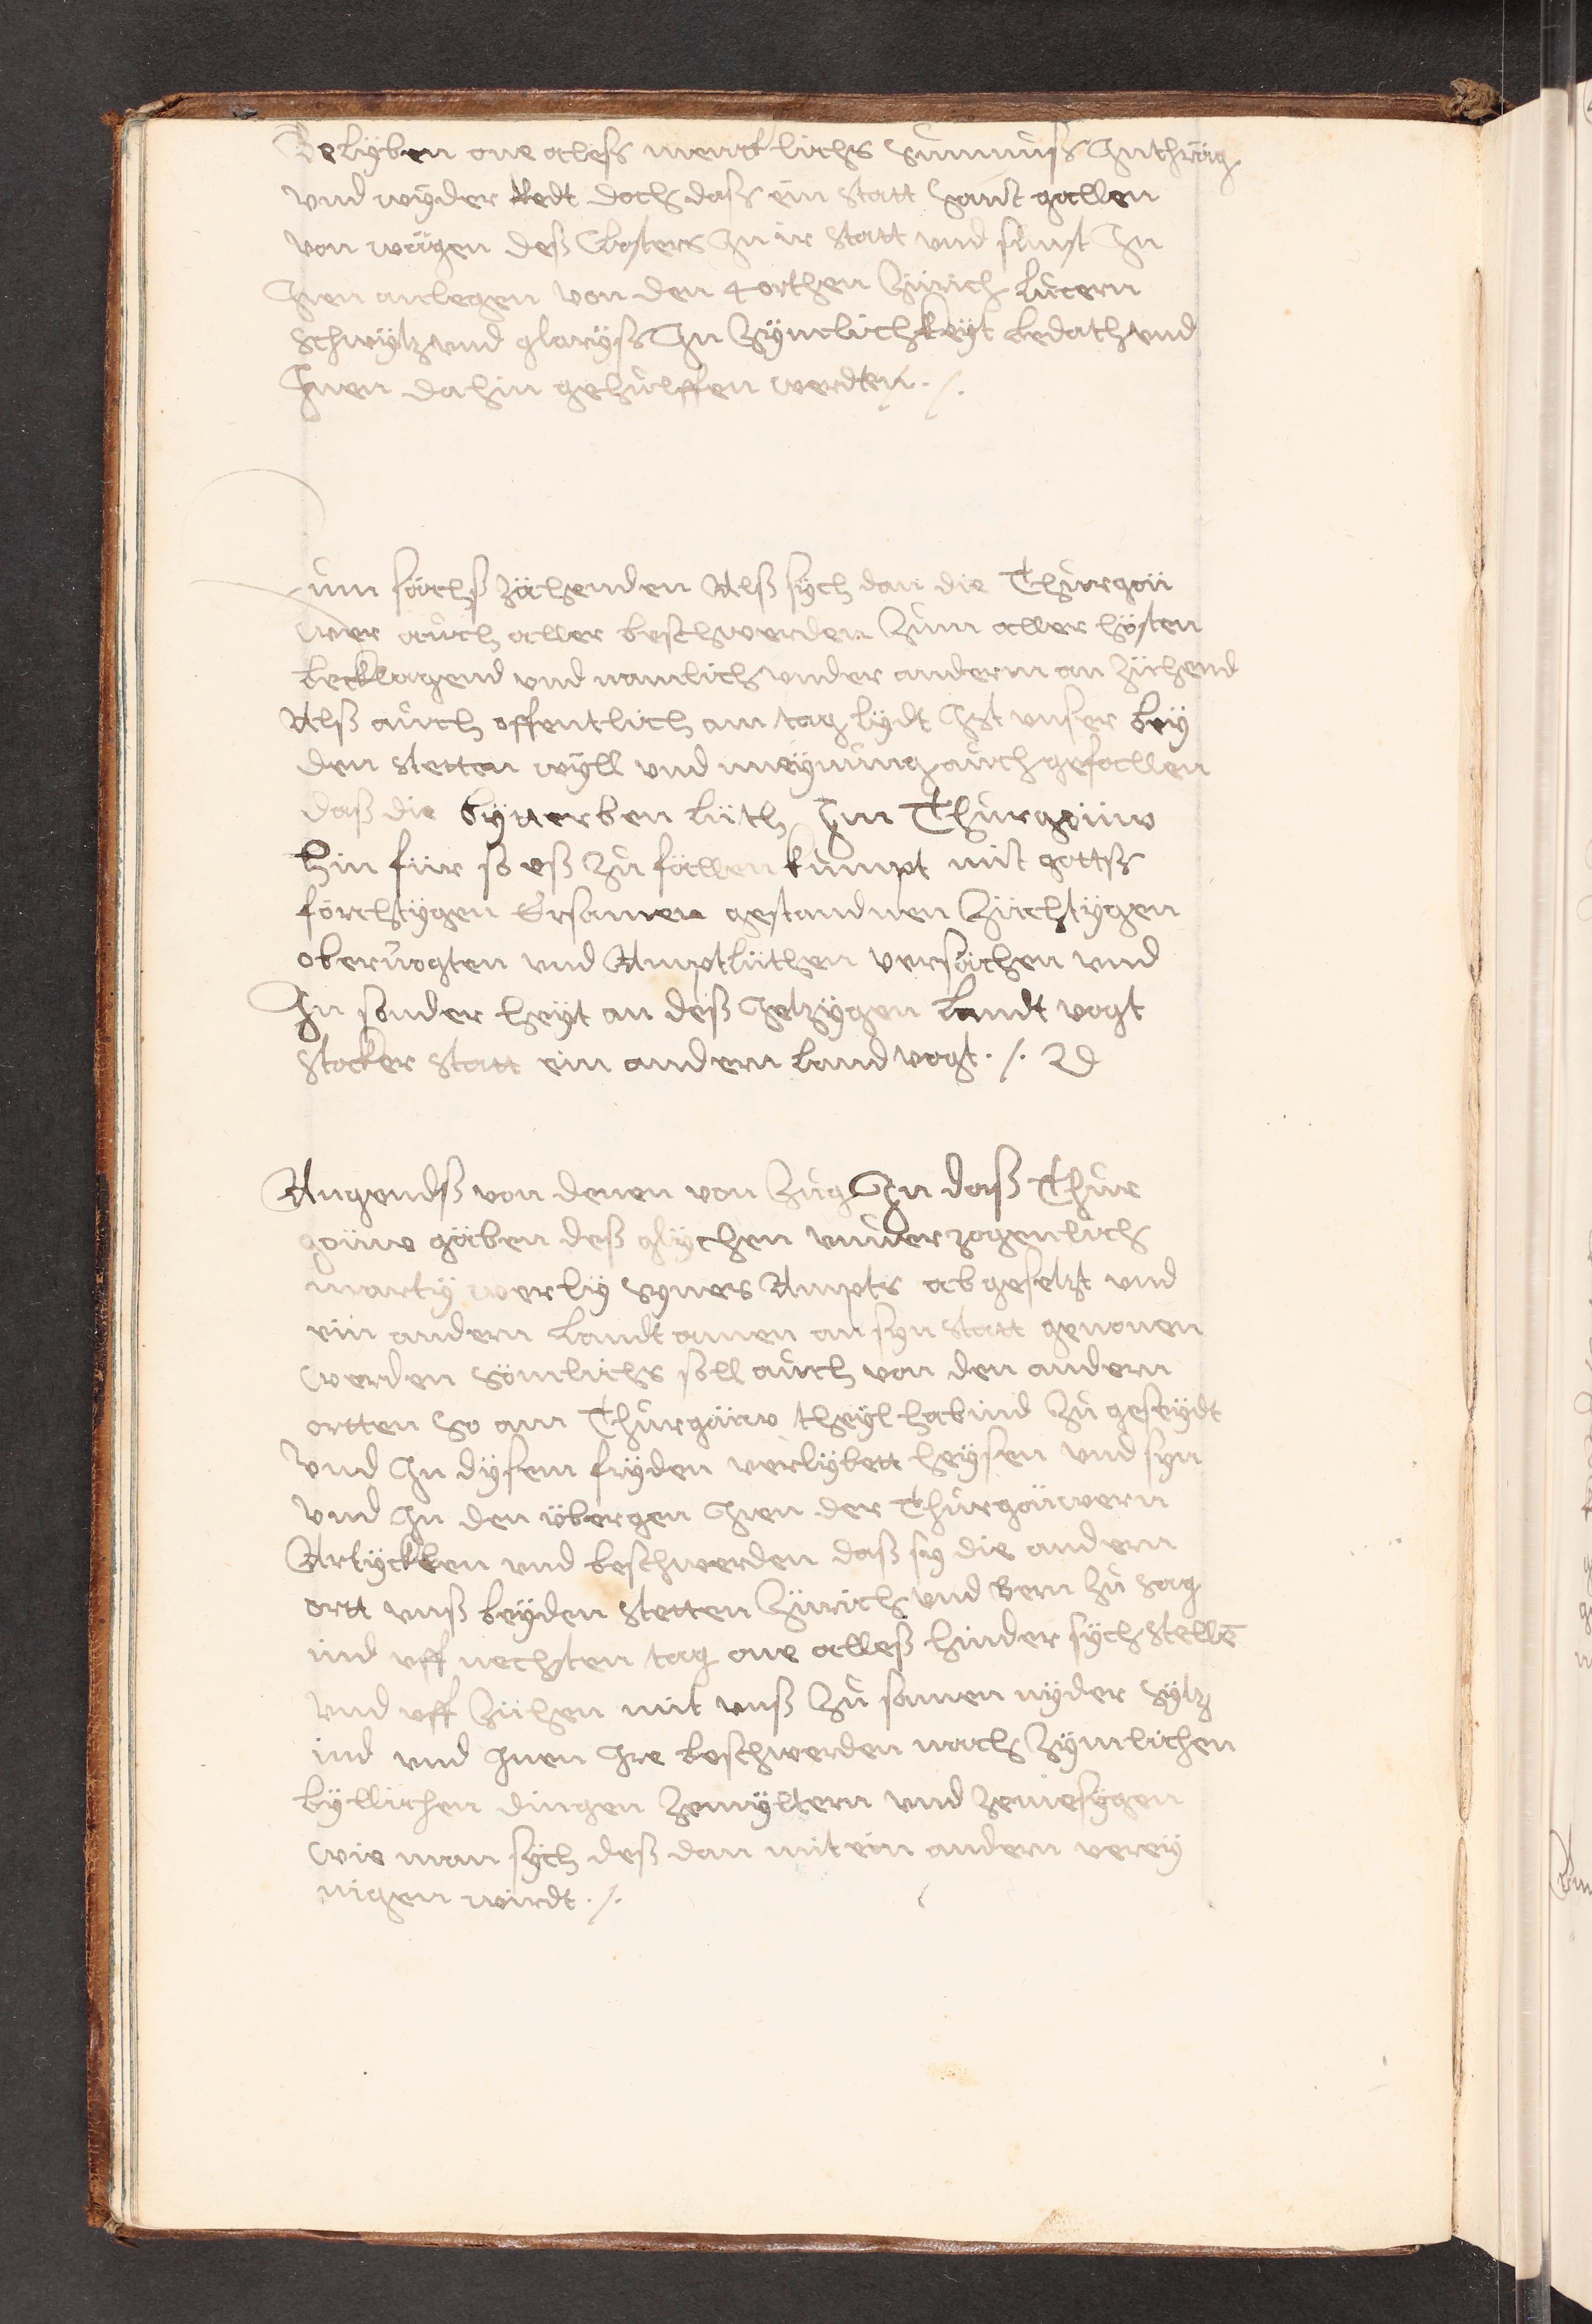 Belÿben one aless mencklichs sumnuß Inthrag
vnd wÿder Redt doch daß ein statt sanct gallen
von wägen deß Closters In ir statt vnd sunst In
Iren anlegen von den 4 orthen Zürich lucern
Schwÿtz vnd glaryß In Zÿmlichkeÿt bedath vnd
Inen dahin gehulffen werdten ./.
um sächszächenden Alß sÿch dan die Thurgöü
wer auch aller beschwerden Zum aller hösten
becklagend vnd namlich vnder anderm an Züchend
Alß auch offentlich am tag lÿdt Ist vnser beÿ
den stetten wÿll vnd meÿnung auch gefallen
daß die bÿderben lüth Im Thurgöüw
hin für so eß Zu fällen kumpt mit gottß
förchtÿgen Ersamen gestandnen Züchtÿgen
obervogten vnd Amptlüthen versächen vnd
In sonder heÿt an deß Ietzÿgen landt vogt
stocker statt ein andern landvogt ./.
Angendß von denen von Zug In daß Thur
göüw gäben deß glÿchen vnuerzogenlich
martÿ werlÿ synes Ampts abgesetzt vnd
ein andern landt amen an syn statt genomen
werden Sömlichs soll auch von den andern
ortten So am Thurgöüw theÿl habind Zu geseÿdt
Vnd In dÿsem frÿden verlÿbett heÿsen vnd syn
Vnd In den übergen Iren der Thurgöüwern
Artÿcklen vnd beschwerden daß sy die andern
ortt vnß beÿden stetten Zürich vnd Bern Zu sag
ind vff nechsten tag one alleß hinder sÿch stellē
vnd vff Züchen mit vnß Zu samen nÿder sÿtz
ind vnd Inen Ire beschwerden nach Zÿmlichen
bÿllichen dingen Zemÿltern vnd Zemesÿgen
wie man sÿch deß dan mit ein andern vereÿ
nigen wirdt ./.